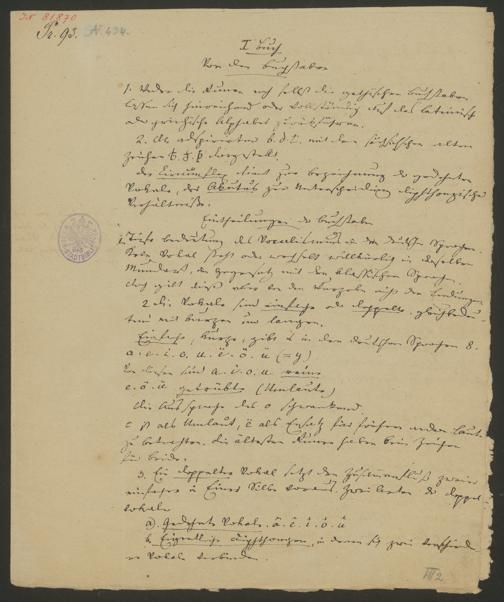 JN 81870
Pr. 93. N. 434.
I Buch
Von den Buchstaben
1. Weder die Runen noch selbst die gothischen Buchstaben
lassen sich hinreichend oder vollständig auf das lateinisch
oder griechische Alphabet zurückführen.
2. die adspirirten b. d. mit den sächsischen alten
Zeichen dargestellt.
der Circumflex dient zur bezeichnung der gedehnten
Vokale, der Akutus zur Unterscheidung diphthongischer
Verhältnisse.
Eintheilungen der Buchstaben
1. Tiefe bedeutung des Vocalismus in den deutschen Sprachen.
Kein Vokal steht oder wechselt willkürlich in derselben
Mundart, im Gegensatz mit den klassischen Sprachen.
doch gilt dieses aber von den Wurzeln nicht den Endungen
2 die Vokale sind einfache oder doppelte, gleichbedeu-
tend mit kurzen und langen.
Einfache, kurze, gibt es in den deutschen Sprachen 8.
a. e. i. o. u. ë. ö. ü (= y)
Von diesen sind a. i. o. u. reine
e. ö. ü getrübte (Umlaute)
die Aussprache des o schwankend.
e als Umlaut, ë als Ersatz für frühere andere Laute
zu betrachten. die ältesten Runen haben kein Zeichen
für beide.
3. Ein doppelter Vokal setzt den Zusammenfluß zweier
einfacher in Einer Silbe voraus. Zwei Arten der doppel-
vokale
a). Gedehnte Vokale. â. ê. î. ô. û
b. Eigentliche Diphthongen, in denen sich zwei verschiede-
ne Vokale verbinden.
III2